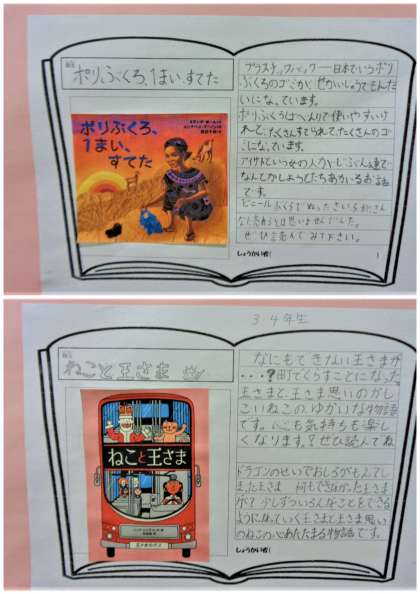 ポリぶくろ、1まい、すてた
ポリぶくろ、
1まい、
すてた
プラスチックバック──日本でいうポリ
ぶくろのゴミが せかいじゅうでもんだ
いになっています。
ポリぶくろはべんりで使いやすいけ
れど、たくさんすてられて、たくさんのゴ
ミになっています。
アイサトという女の人が
なんとかしようとたちあがるお話
です。
ビニールぶくろで
ぜひ読んでみて下さい。
しょうかい者(
3・4年生
ねこと王さま
ねこと王さま
なにもできない王さまが
・・・?町でくらすことになった
王さまと、王さま思いのかし
こいねこの、ゆかいな物語
です。心も気持ちも楽し
くなります。ぜひ読んでね
ドラゴンのせいでおしろがもえてし
まった王さま 何もできなかった王さま
が? 少しずついろんなことをできる
ようになっていく王さまと王さま思い
のねこの心あたたまる物語です。
しょうかい者(